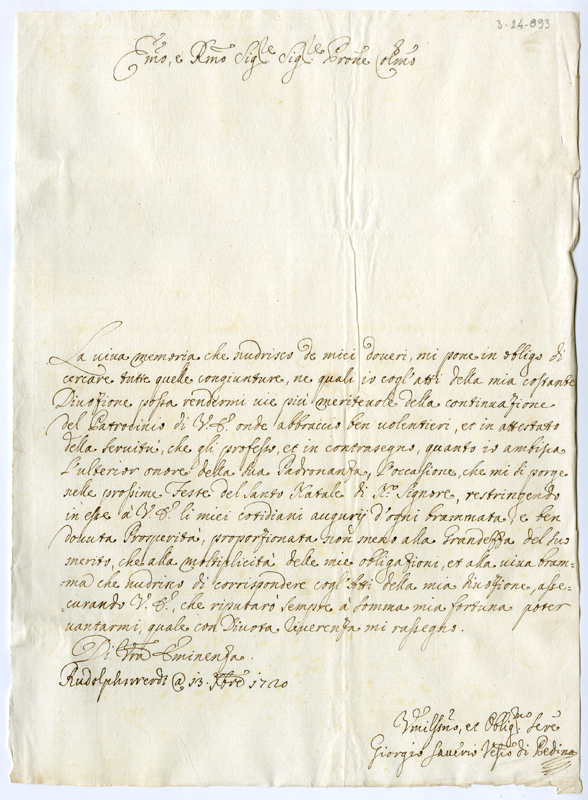 3-24-893
Emo, e Rmo Sigre Sigre Prone Colmo
La viva memoria che nudrisco de miei doveri, mi pone in obligo di
cercare tutte quelle congiunture, ne quali io cogl'atti della mia costante
Divozione possa rendermi vie più meritevole della continuazione
del Patrocinio di V. E. onde abbraccio ben volentieri, et in attestato
della servitù, che gli professo, et in contrasegno, quanto io ambisca
l'ulterior onore della sua Padronanza, l'occasione, che mi si porge
nelle prossime Feste del Santo Natale di N.o Signore, restringendo
in esse à V. E. li miei cotidiani augurij d'ogni brammata, e ben
douuta Prosperità, proporzionata non meno alla Grandezza del suo
merito, che alla moltiplicità delle mie obligazioni, et alla viva bram-
ma che nudrisco di corrispondere cogl'Atti della mia divozione, asse-
curando V. E., che riputarò sempre à somma mia fortuna poter
vantarmi, quale con Divota riverenza mi rassegno.
Di Vra Eminenza.
Rudolphswerdt @ 13. Xbre 1720
Vmilsmo, et Obligmo Sere
Giorgio Saverio Vescо di Pedina